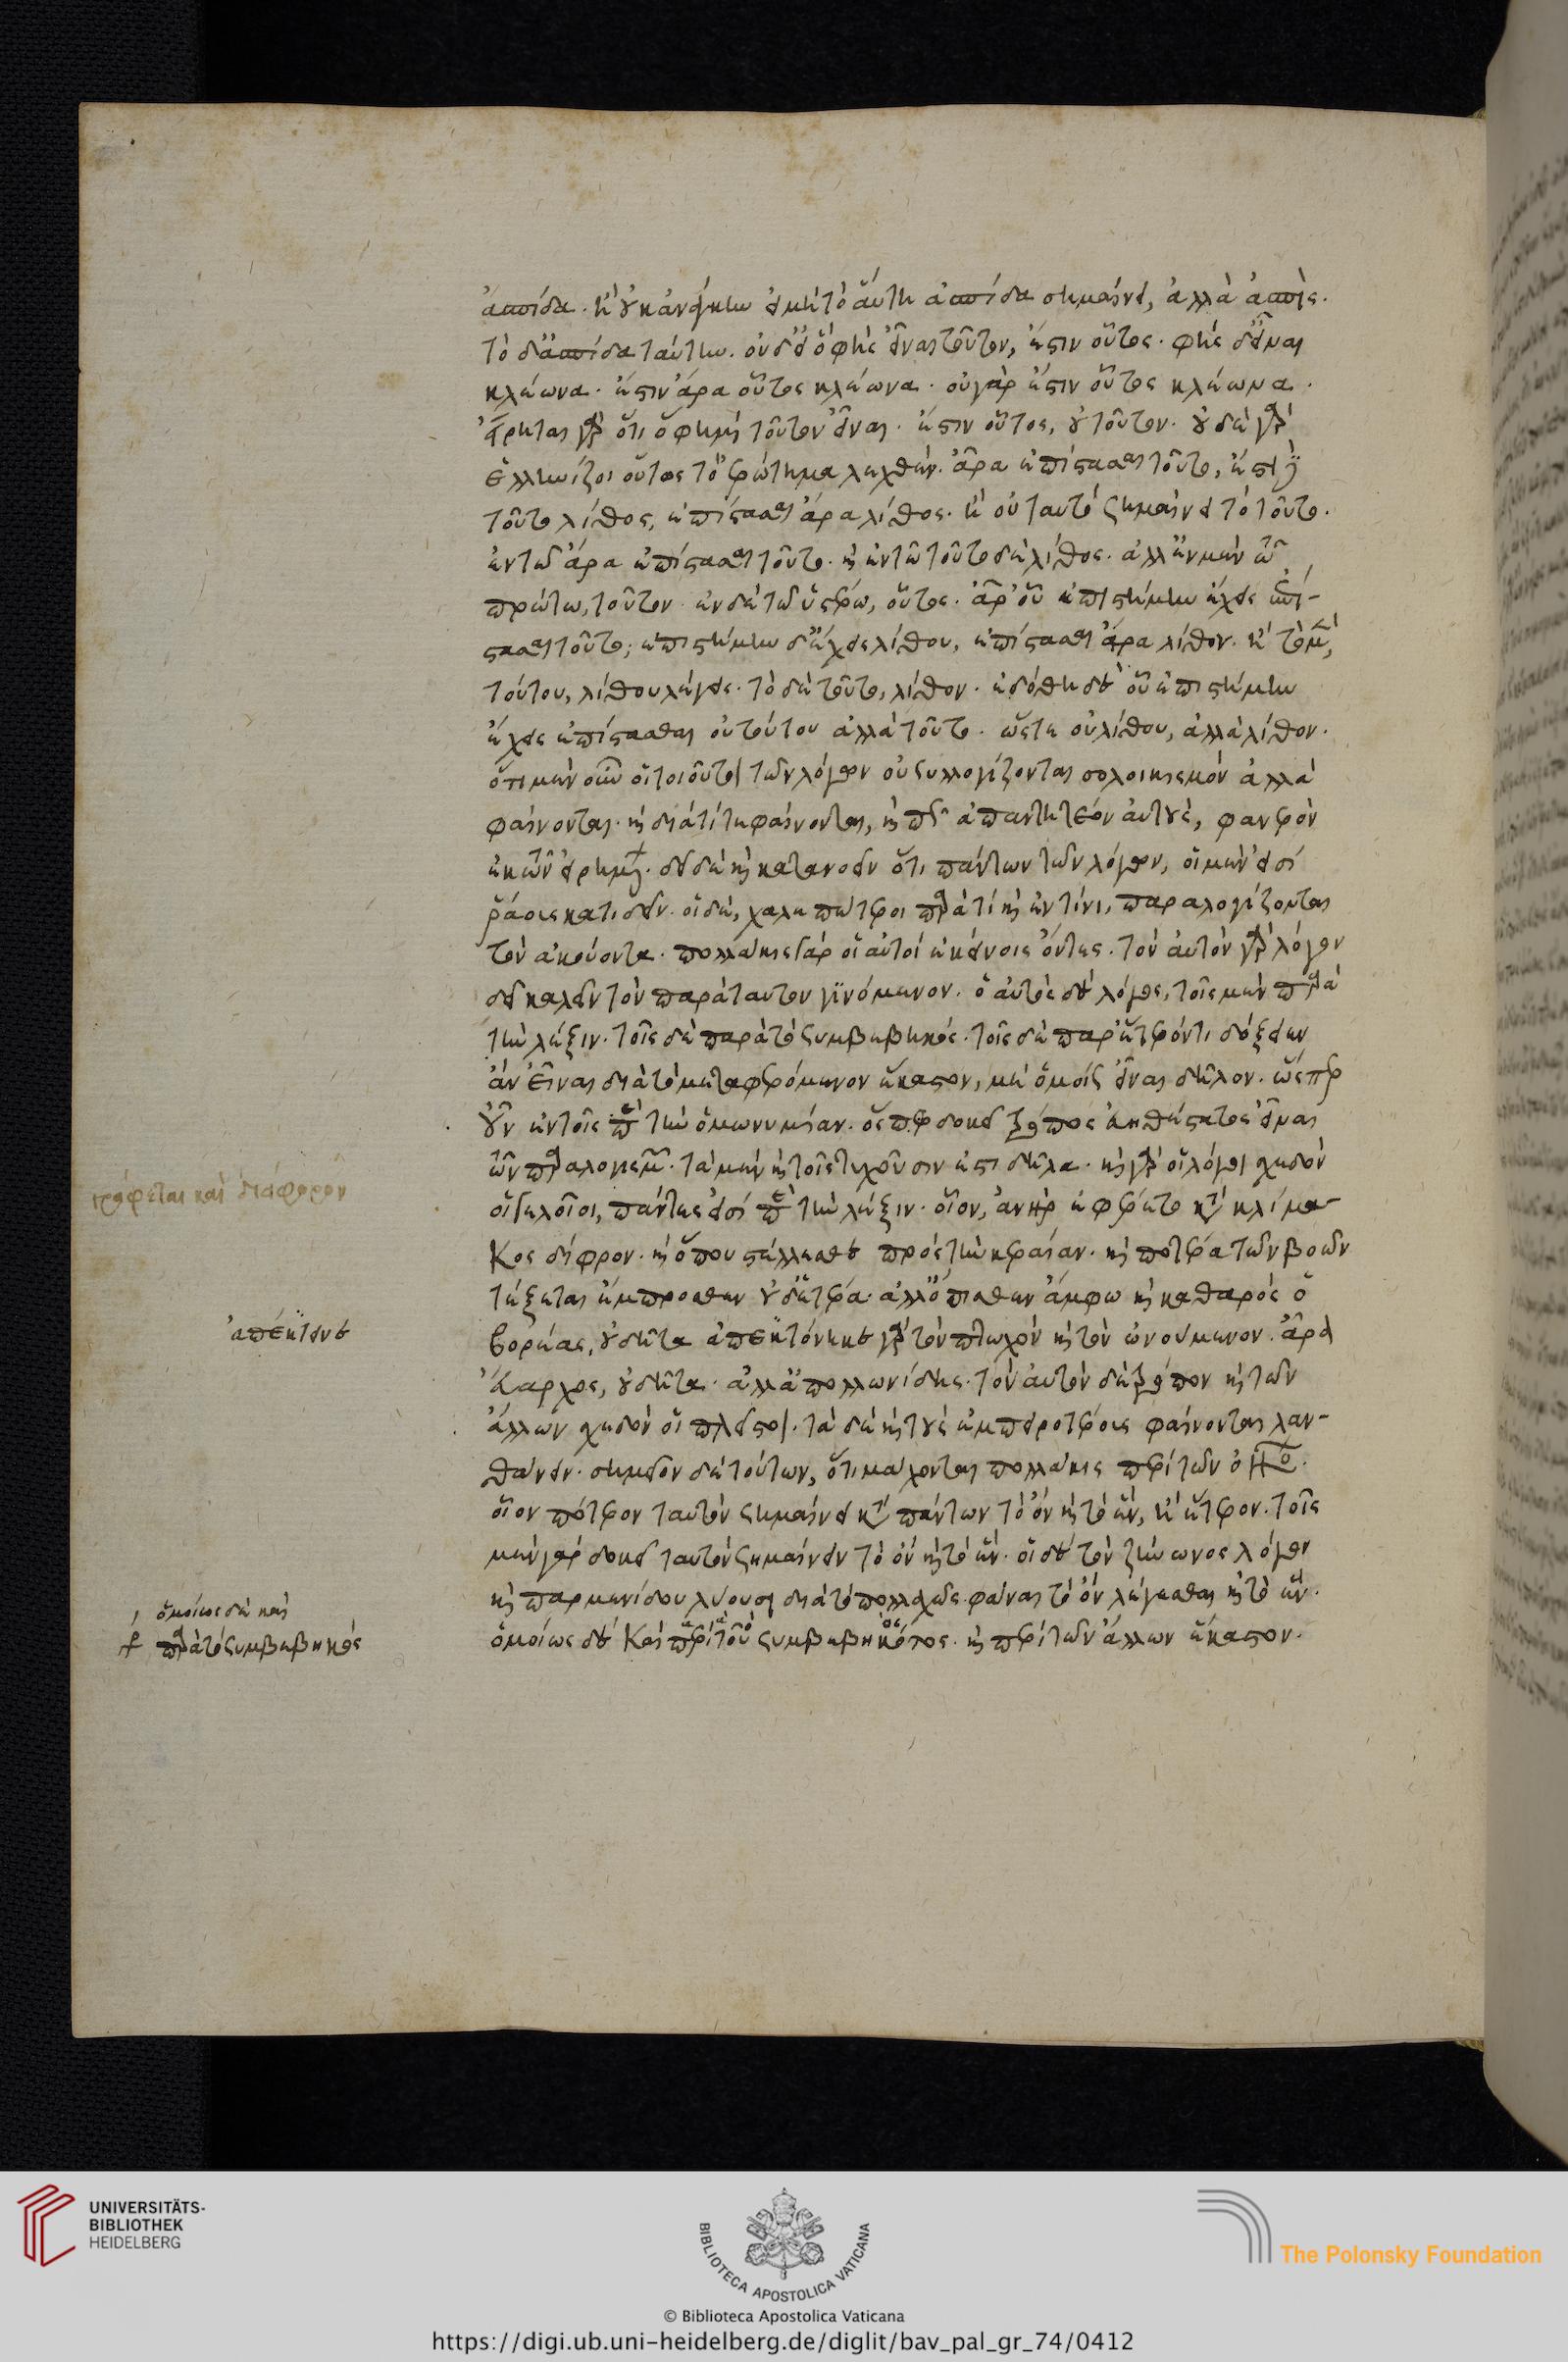 ἀσπίδα. καὶ οὐκ ἀνάγκη εἰ μὴ τὸ αὕτη ἀσπίδα σημαίνει, ἀλλὰ ἀσπὶς.
τὸ δ' ἀσπίδα ταύτην. οὐδ' εἰ ὃ φὴς εἶναι τοῦτον, ἔστιν οὗτος. φὴς δ' εἶναι
κλέωνα. ἔστιν ἄρα οὗτος κλέωνα. οὐ γὰρ ἔστιν οὗτος κλέωνα.
εἴρηται γὰρ ὅτι ὃ φημὶ τοῦτον εἶναι. ἔστιν οὗτος, οὐ τοῦτον. οὐδὲ γὰρ
ἑλληνίζοι οὕτως τὸ ἐρώτημα λεχθέν. ἆρα ἐπίστασαι τοῦτο, ἔστι δὲ
τοῦτο λίθος, ἐπίστασαι ἄρα λίθος. καὶ οὐ ταυτό σημαίνει τὸ τοῦτο.
ἐν τῷ ἆρα ἐπίστασαι τοῦτο. καὶ ἐν τῷ τοῦτο δὲ λίθος. ἀλλ' ἐν μὲν τῷ
πρώτω, τοῦτον. ἐν δὲ τῷ ὑστέρω, οὗτος. ἆρ' οὗ ἐπιστήμην ἔχεις ἐπί-
στασαι τοῦτο; ἐπιστήμην δ' ἔχεις λίθου, ἐπίστασαι ἄρα λίθον. καὶ τὸ μὲν,
τούτου, λίθου λέγεις. τὸ δὲ τοῦτο, λίθον. ἐδόθη δὲ οὗ ἐπιστήμην
ἔχεις ἐπίστασθαι οὐ τούτου ἀλλὰ τοῦτο. ὥστε οὐ λίθου, ἀλλὰ λίθον.
ὅτι μὲν οὖν οἱ τοιοῦτοι τῶν λόγων οὐ συλλογίζονται σολοικισμόν ἀλλὰ
φαίνονται. καὶ διὰ τί τε φαίνονται, καὶ πῶς ἀπαντητέον αὐτοὺς, φανερὸν
ἐκ τῶν εἰρημένων. δεῖ δὲ καὶ κατανοεῖν ὅτι πάντων τῶν λόγων, οἱ μὲν εἰσί
ῥάους κατιδεῖν. οἱ δὲ, χαλεπώτεροι παρὰ τί καὶ ἐν τίνι, παραλογίζονται
τὸν ἀκούοντα. πολλάκις γὰρ οἱ αὐτοὶ ἐκείνοις ὄντες. τὸν αὐτὸν γὰρ λόγον
δεῖ καλεῖν τὸν παρὰ ταυτον γϊνόμενον. ὁ αὐτὸς δὲ λόγος, τοῖς μὲν παρὰ
τὴν λέξιν. τοῖς δὲ παρὰ τὸ συμβεβηκός. τοῖς δὲ παρ' ἕτερόν τι δόξειεν
ἂν εἶναι διὰ τὸ μεταφερόμενον ἕκαστον, μὴ ὁμοίως εἶναι δῆλον. ὥσπερ
οὖν ἐν τοῖς παρὰ τὴν ὁμωνυμίαν. ὅσπερ δοκεῖ τρόπος εὐηθέστατος εἶναι
τῶν παραλογισμῶν. τὰ μὲν καὶ τοῖς τυχοῦσιν ἐστι δῆλα. καὶ γὰρ οἱ λόγοι σχεδὸν
οἱ γελοῖοι, πάντες εἰσί παρὰ τὴν λέξιν. οἷον, ἀνὴρ ἐφέρετο κατὰ κλίμα-
κος δίφρον. καὶ ὅπου στέλλεσθε πρὸς τὴν κεραίαν. καὶ ποτέρα τῶν βοῶν
τέξεται ἔμπροσθεν οὐδετέρα ἀλλ' ὄπισθεν ἄμφω καὶ καθαρός ὁ
βορέας, οὐ δῆτα ἀπεκτόνηκε γὰρ τὸν πτωχὸν καὶ τὸν ὠνούμενον. ἆρα
εὔαρχος, οὐ δῆτα. ἀλλ' ἀπολλωνίδης. τὸν αὐτὸν δὲ τρόπον καὶ τῶν
ἄλλων σχεδὸν οἱ πλεῖστοι. τὰ δὲ καὶ τοὺς ἐμπειροτέρους φαίνονται λαν-
θάνειν. σημεῖον δὲ τούτων, ὅτι μάχονται πολλάκις περὶ τῶν ὀνομάτων.
οἷον πότερον ταυτὸν σημαίνει κατὰ πάντων τὸ ὂν καὶ τὸ ἓν, καὶ ἕτερον. τοῖς
μὲν γὰρ δοκεῖ ταυτὸν σημαίνειν τὸ ὂν καὶ τὸ ἓν. οἱ δὲ τὸν ζήνωνος λόγον
καὶ παρμενίδου λύουσι διὰ τὸ πολλαχῶς φάναι τὸ ὂν λέγεσθαι καὶ τὸ ἓν.
ὁμοίως δὲ καὶ περὶ τοῦ συμβεβηκότος. καὶ περὶ τῶν ἄλλων ἕκαστον.
γράφεται καὶ διάφορον
ἀπέκτεινε
ὁμοίως δὲ καὶ
παρὰ τὸ συμβεβηκὸς
UNIVERSITÄTS-
BIBLIOTHEK
HEIDELBERG
BIBLIOTECA APOSTOLICA VATICANA
The Polonsky Foundation
© Biblioteca Apostolica Vaticana
https://digi.ub.uni-heidelberg.de/diglit/bav_pal_gr_74/0412